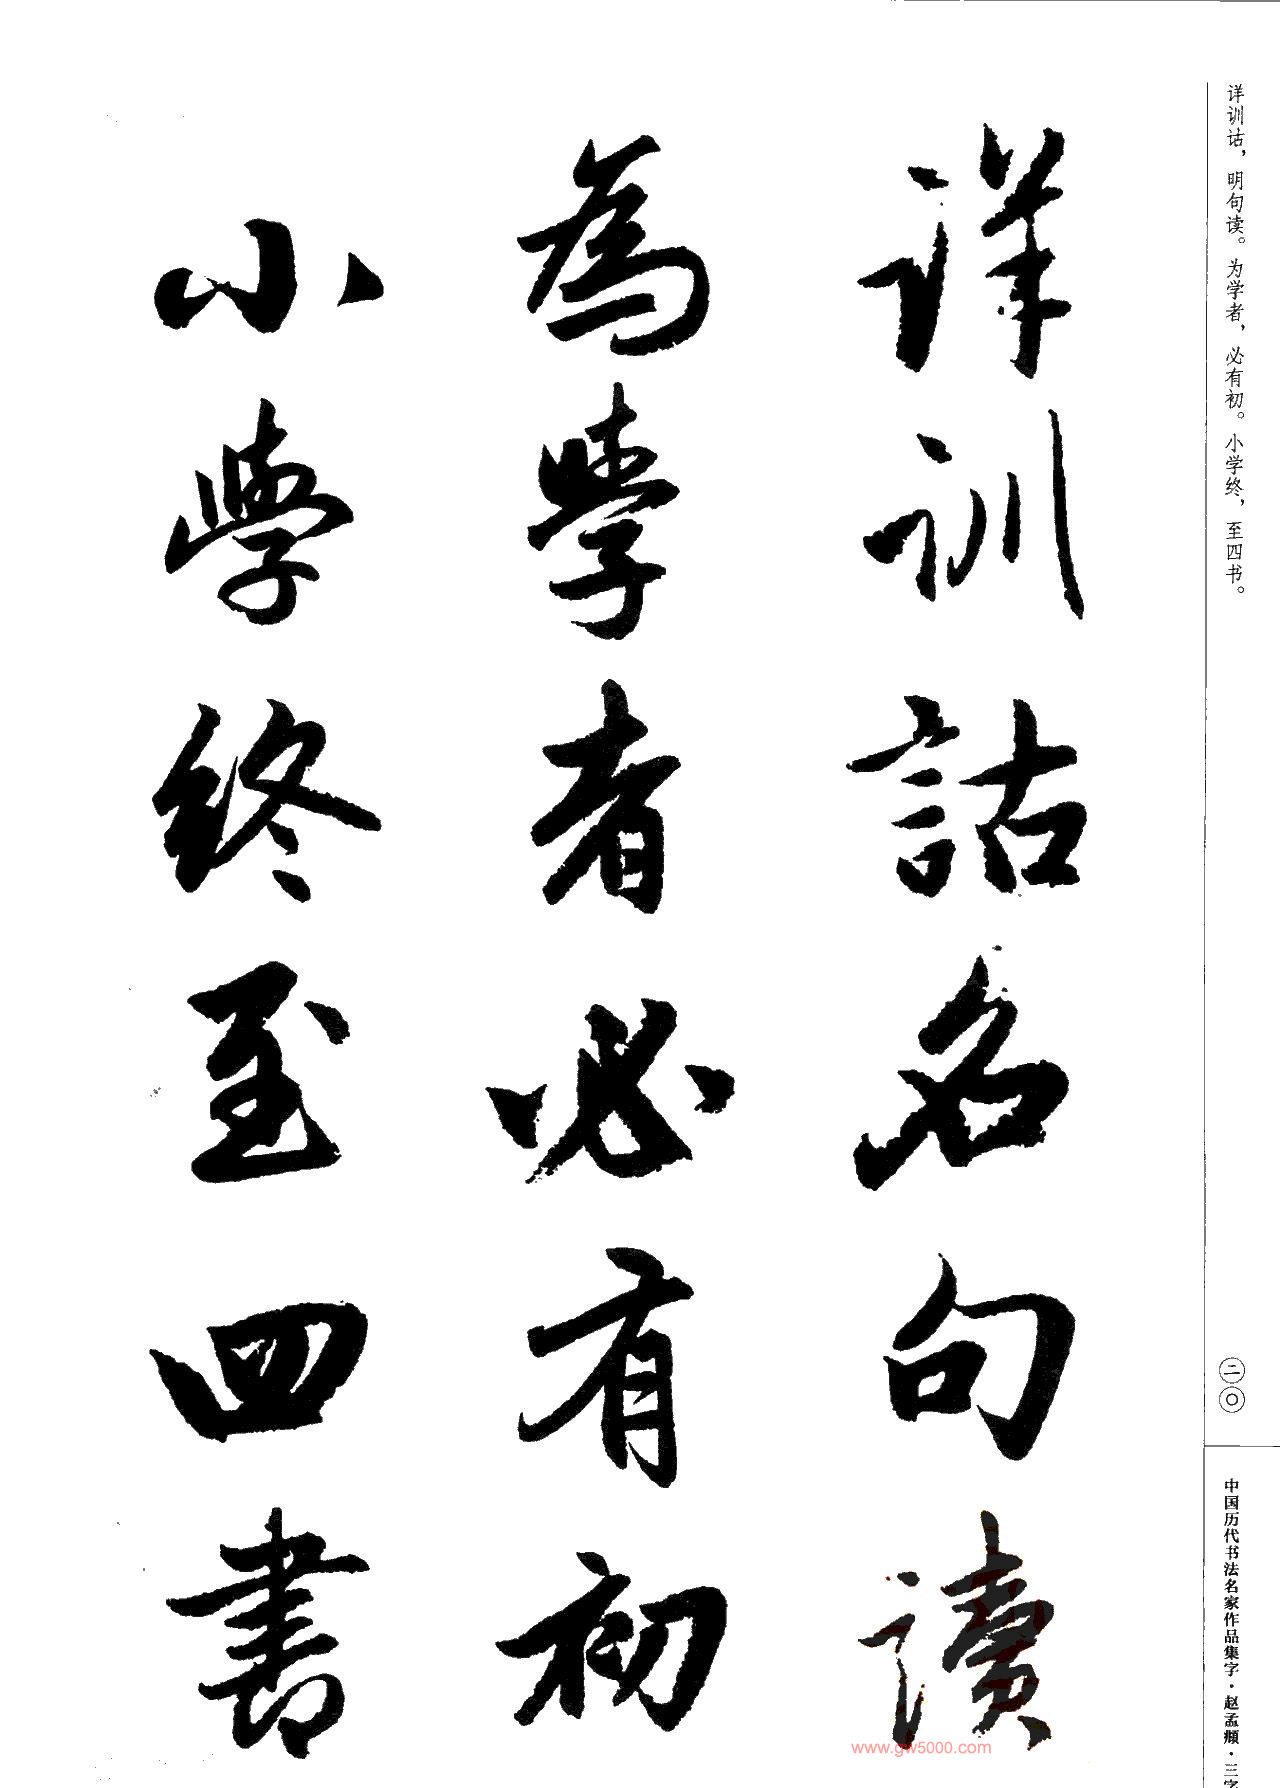 详训诂，明句读。为学者，必有初。小学终，至四书。
詳訓詁名句讀
為學者必有初
小學終至四書
二〇
中国历代书法名家作品集字·赵孟頫·三字
www.gw5000.com